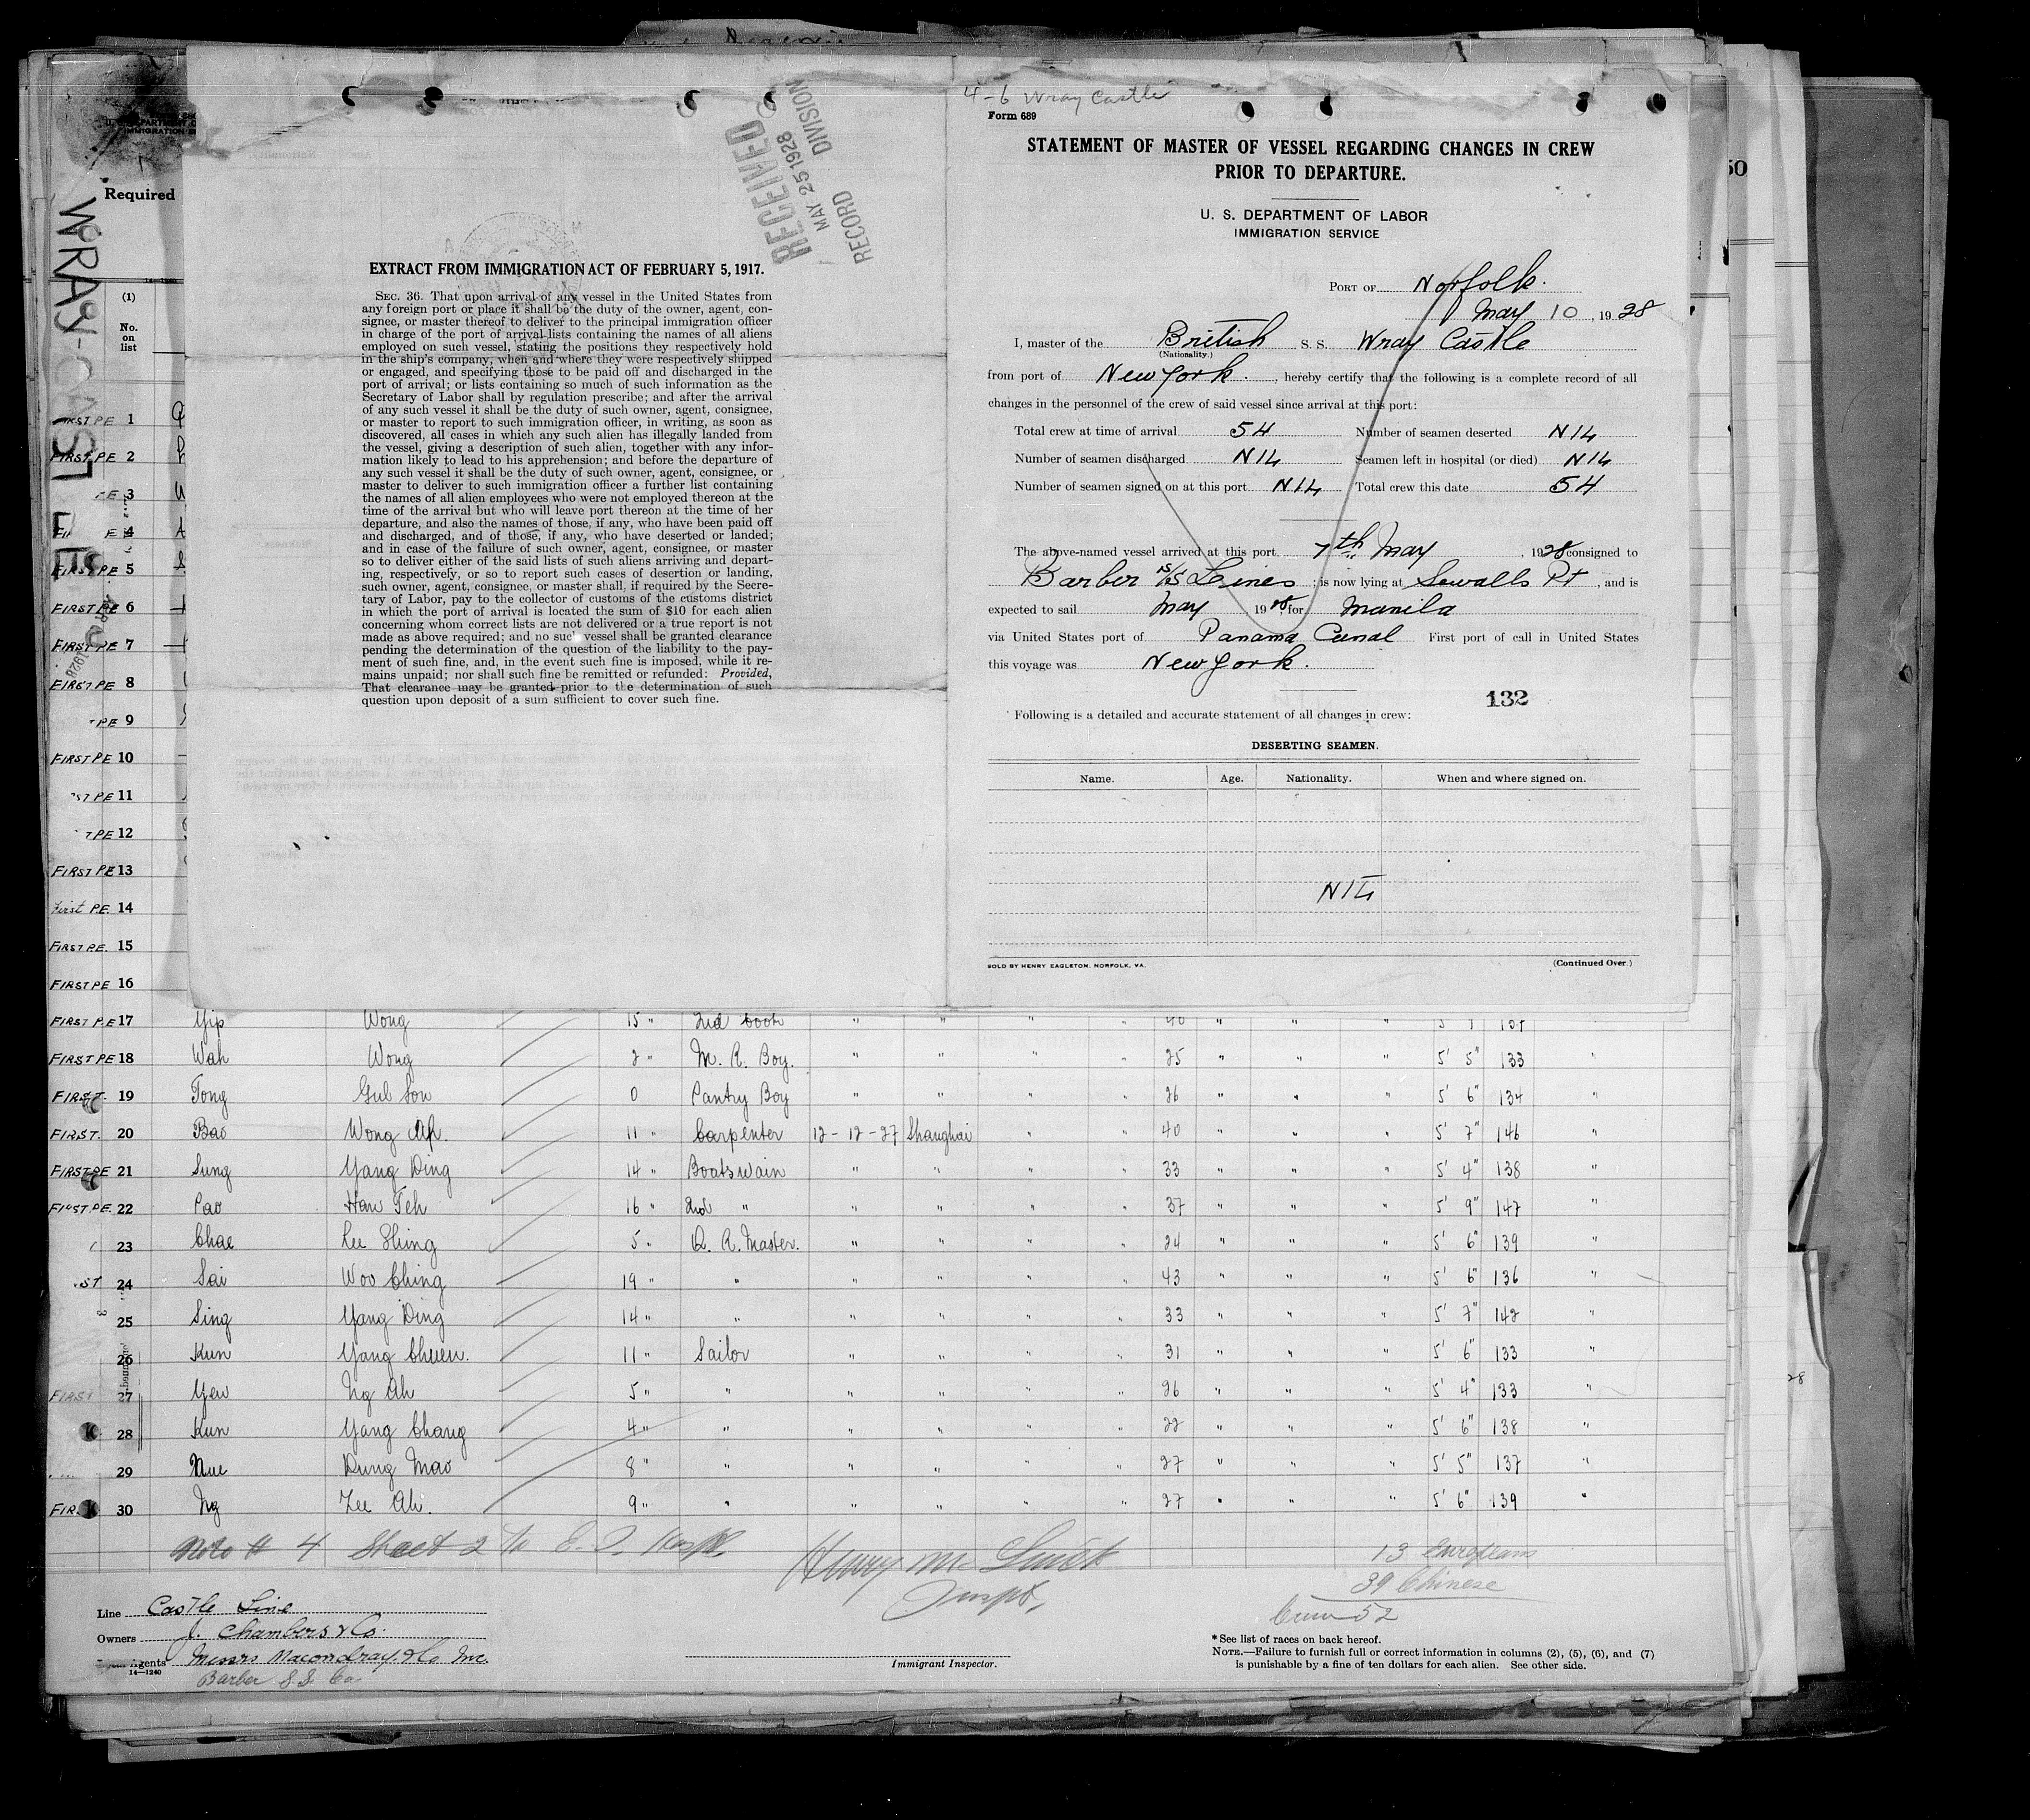 4-6 Wray Castle
Form 689
STATEMENT OF MASTER OF VESSEL REGARDING CHANGES IN CREW
PRIOR TO DEPARTURE.
U. S. DEPARTMENT OF LABOR
IMMIGRATION SERVICE
PORT OF Norfolk.
May 10, 1928
I, master of the British S. S. Wray Castle
(Nationality.)
from port of New York., hereby certify that the following is a complete record of all
changes in the personnel of the crew of said vessel since arrival at this port:
Total crew at time of arrival 54 Number of seamen deserted NIL
Number of seamen discharged NIL Seamen left in hospital (or died) NIL
Number of seamen signed on at this port NIL Total crew this date 54
The above-named vessel arrived at this port 7th May, 1928 consigned to
Barber SS Lines; is now lying at Sewalls Pt, and is
expected to sail May 1928 for Manila
via United States port of Panama Canal First port of call in United States
this voyage was New York.
132
Following is a detailed and accurate statement of all changes in crew:
DESERTING SEAMEN.
Name. Age. Nationality. When and where signed on.
NIL
SOLD BY HENRY EAGLETON, NORFOLK, VA. (Continued Over.)
RECEIVED
MAY 25 1928
RECORD DIVISION
EXTRACT FROM IMMIGRATION ACT OF FEBRUARY 5, 1917.
SEC. 36. That upon arrival of any vessel in the United States from
any foreign port or place it shall be the duty of the owner, agent, con-
signee, or master thereof to deliver to the principal immigration officer
in charge of the port of arrival lists containing the names of all aliens
employed on such vessel, stating the positions they respectively hold
in the ship's company, when and where they were respectively shipped
or engaged, and specifying those to be paid off and discharged in the
port of arrival; or lists containing so much of such information as the
Secretary of Labor shall by regulation prescribe; and after the arrival
of any such vessel it shall be the duty of such owner, agent, consignee,
or master to report to such immigration officer, in writing, as soon as
discovered, all cases in which any such alien has illegally landed from
the vessel, giving a description of such alien, together with any infor-
mation likely to lead to his apprehension; and before the departure of
any such vessel it shall be the duty of such owner, agent, consignee, or
master to deliver to such immigration officer a further list containing
the names of all alien employees who were not employed thereon at the
time of the arrival but who will leave port thereon at the time of her
departure, and also the names of those, if any, who have been paid off
and discharged, and of those, if any, who have deserted or landed;
and in case of the failure of such owner, agent, consignee, or master
so to deliver either of the said lists of such aliens arriving and depart-
ing, respectively, or so to report such cases of desertion or landing,
such owner, agent, consignee, or master shall, if required by the Secre-
tary of Labor, pay to the collector of customs of the customs district
in which the port of arrival is located the sum of $10 for each alien
concerning whom correct lists are not delivered or a true report is not
made as above required; and no such vessel shall be granted clearance
pending the determination of the question of the liability to the pay-
ment of such fine, and, in the event such fine is imposed, while it re-
mains unpaid; nor shall such fine be remitted or refunded: Provided,
That clearance may be granted prior to the determination of such
question upon deposit of a sum sufficient to cover such fine.
WRAY-CASTLE
Required
(1)
No.
on
list
1
FIRST PE 2
3
4
FIRST PE 5
FIRST PE 6
FIRST PE 7
FIRST PE 8
PE 9
FIRST PE 10
ST PE 11
PE 12
FIRST PE 13
First P.E. 14
FIRST PE. 15
FIRST PE 16
FIRST PE 17 Yip Wong 15 " 2nd Cook " " " " 40 " " " 5' 7 137 "
FIRST PE 18 Wah Wong 2 " M. R. Boy. " " " " 25 " " " 5' 5" 133 "
FIRST. 19 Tong Gul Sou 0 Pantry Boy " " " " 26 " " " 5' 6" 134 "
FIRST. 20 Bao Wong Ah. 11 " Carpenter 12-12-27 Shanghai " " 40 " " " 5' 7" 146 "
FIRST PE 21 Sung Yang Ding 14 " Boatswain " " " " 33 " " " 5' 4" 138 "
FIRST PE. 22 Pao Han Feh 16 " 2nd " " " " " 37 " " " 5' 9" 147 "
23 Chae Lee Shing 5 " Q. R. Master. " " " " 24 " " " 5' 6" 139 "
ST 24 Sai Woo Ching 19 " " " " " " 43 " " " 5' 6" 136 "
25 Sing Yang Ding 14 " " " " " " 33 " " " 5' 7" 142 "
26 Kun Yang Chuen. 11 " Sailor " " " " 31 " " " 5' 6" 133 "
FIRST 27 Yew Ng Ah 5 " " " " " " 26 " " " 5' 4" 133 "
28 Kun Yang Chang 4 " " " " " " 22 " " " 5' 6" 138 "
29 Nue Dung Mao 8 " " " " " " 27 " " " 5' 5" 137 "
FIR 30 Ng Zee Ah. 9 " " " " " " 27 " " " 5' 6" 139 "
Note # 4 Sheet 2 to
13 Europeans
39 Chinese
Crew 52
Line Castle Line
Owners J. Chambers & Co.
Agents Messrs Macondray & Co Inc.
14—1240
Barber S.S. Co
Immigrant Inspector.
*See list of races on back hereof.
NOTE.—Failure to furnish full or correct information in columns (2), (5), (6), and (7)
is punishable by a fine of ten dollars for each alien. See other side.